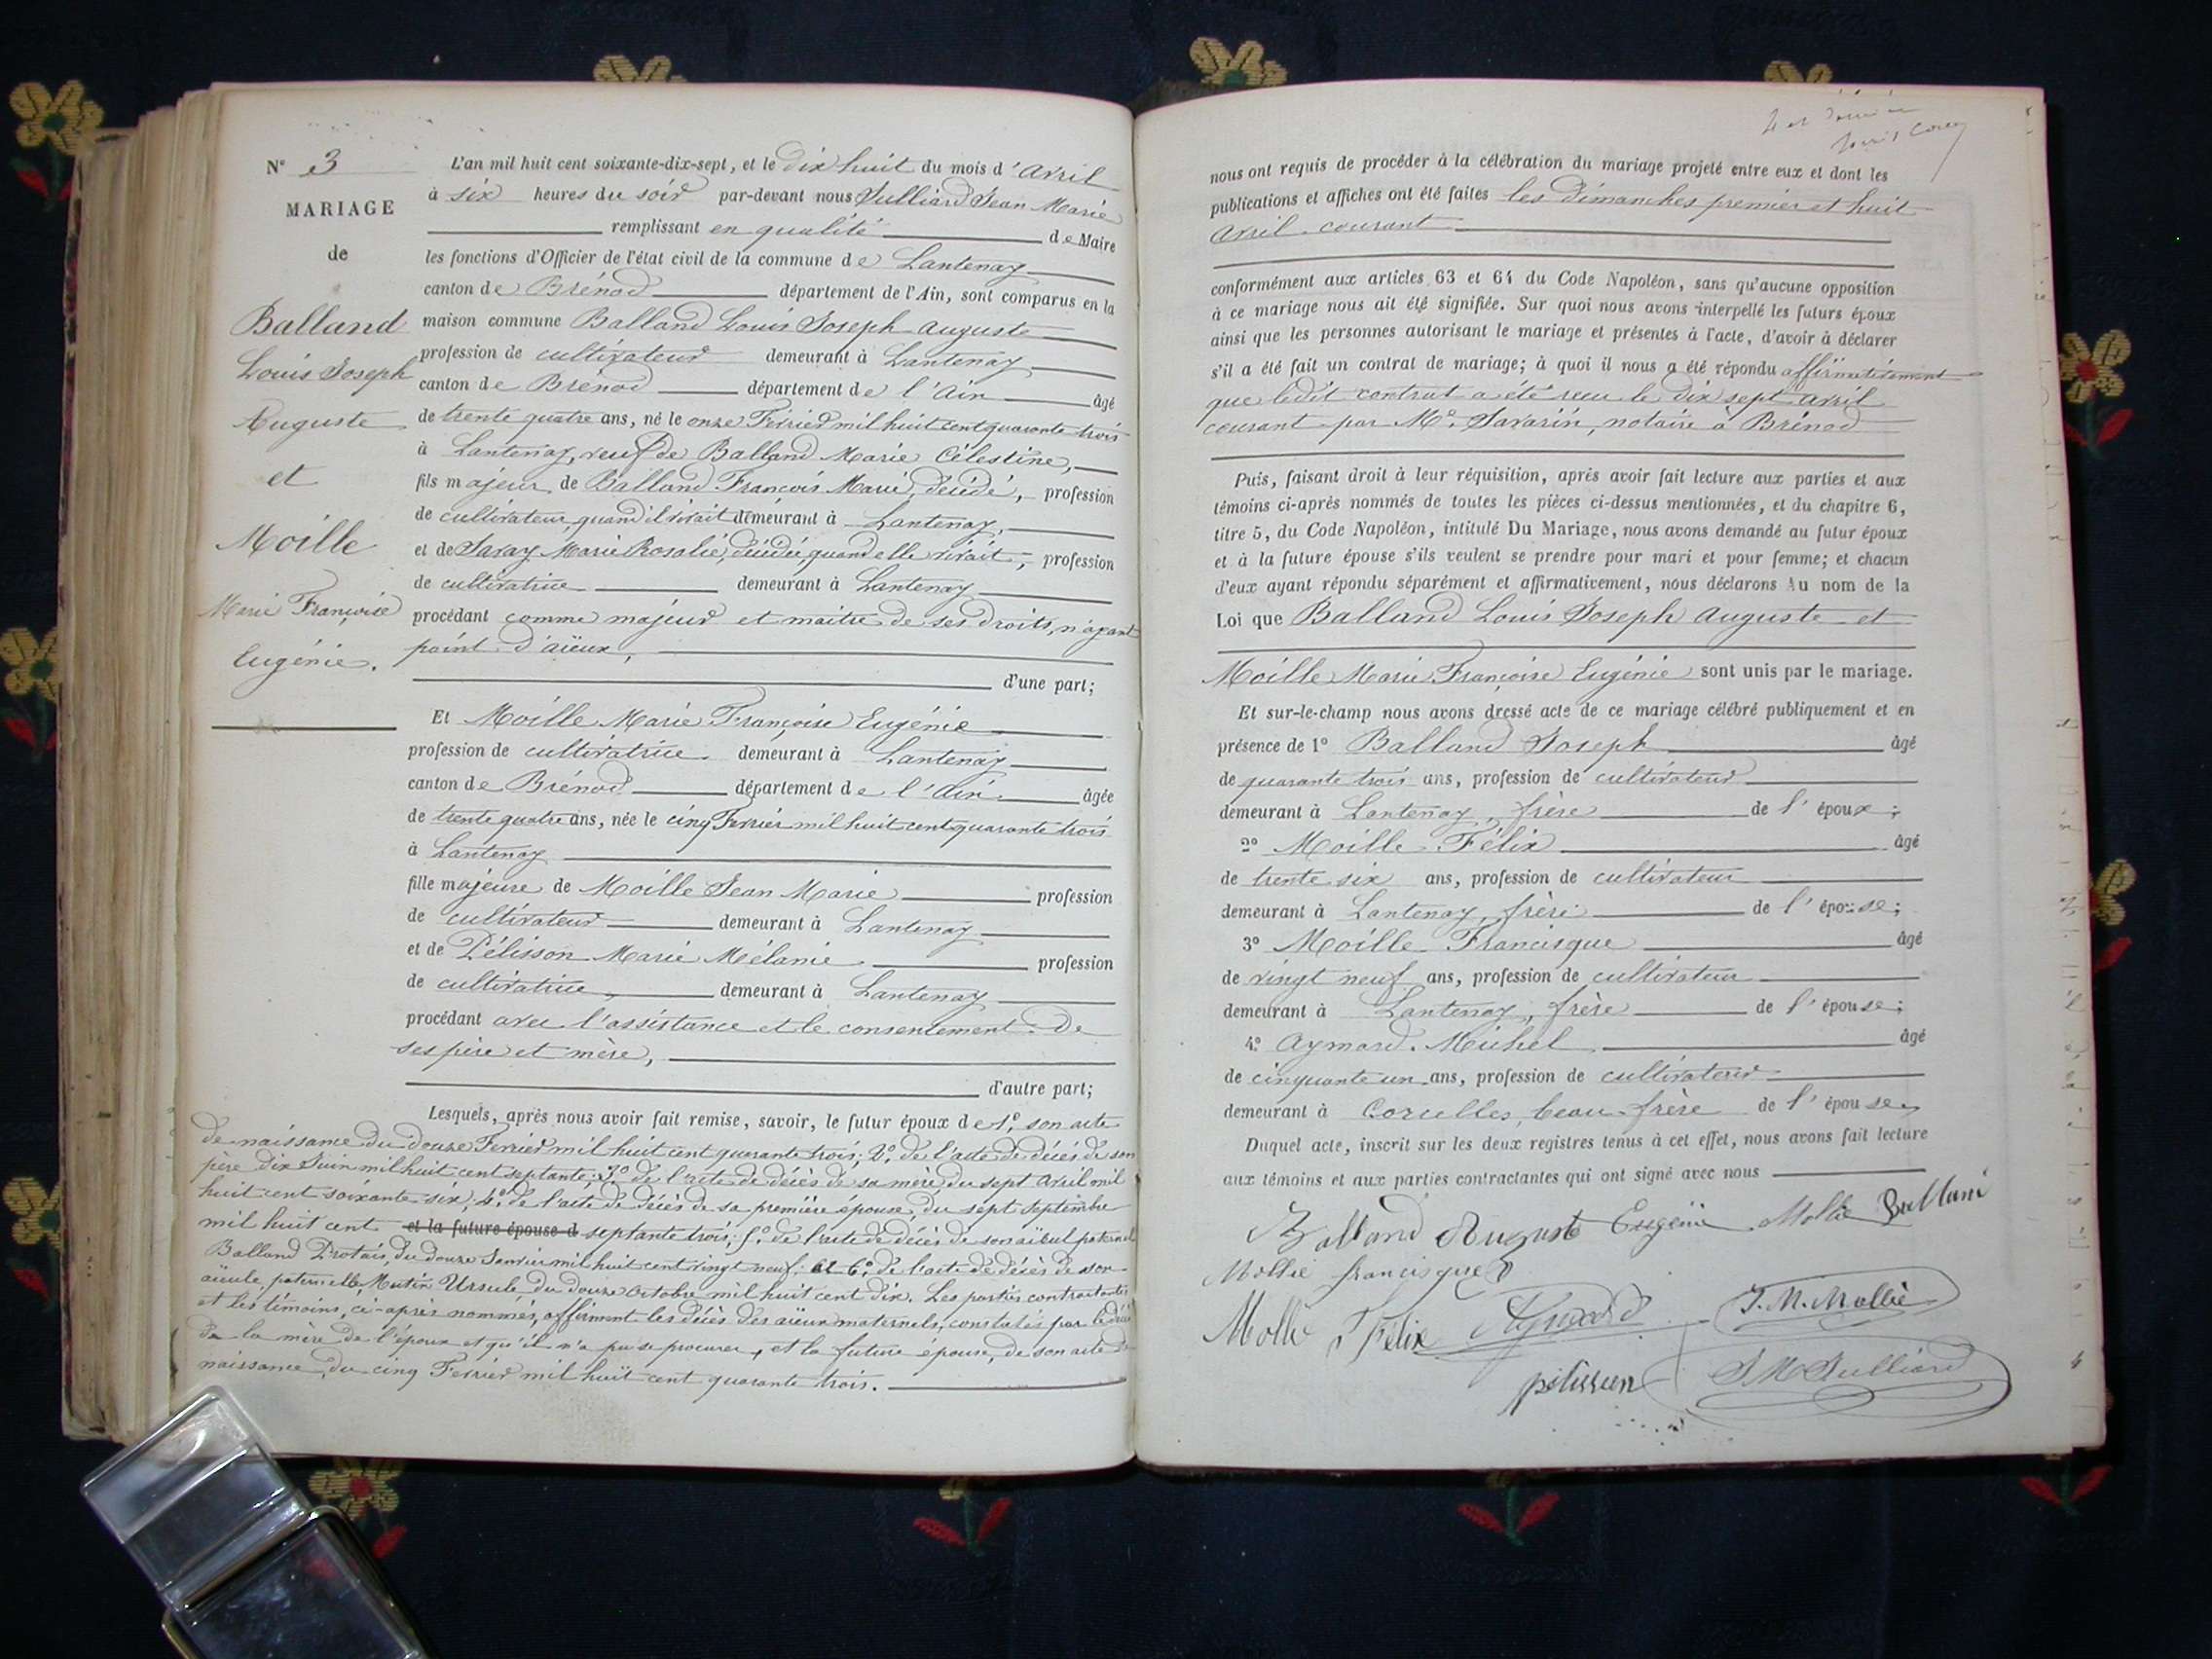 N° 3
MARIAGE
de
Balland
Louis Joseph
Auguste
et
Moille
Marie Françoise
Eugénie.
L'an mil huit cent soixante-dix-sept, et le dix huit du mois d'Avril
à six heures du soir par-devant nous Julliard Jean Marie
remplissant en qualité de Maire
les fonctions d'Officier de l'état civil de la commune de Lantenay
canton de Brénod département de l'Ain, sont comparus en la
maison commune Balland Louis Joseph Auguste
profession de cultivateur demeurant à Lantenay
canton de Brénod département de l'Ain âgé
de trente quatre ans, né le onze Février mil huit cent quarante trois
à Lantenay, veuf de Balland Marie Célestine,
fils majeur de Balland François Marie, décédé, profession
de cultivateur, quand il vivait demeurant à Lantenay,
et de Savay Marie Rosalie, décédée, quand elle vivait, profession
de cultivatrice demeurant à Lantenay
procédant comme majeur et maitre de ses droits, n'ayant
point d'aïeux,
d'une part;
Et Moille Marie Françoise Eugénie
profession de cultivatrice demeurant à Lantenay
canton de Brénod département de l'Ain âgée
de trente quatre ans, née le cinq Février mil huit cent quarante trois
à Lantenay
fille majeure de Moille Jean Marie profession
de cultivateur demeurant à Lantenay
et de Pélisson Marie Mélanie profession
de cultivatrice, demeurant à Lantenay
procédant avec l'assistance et le consentement de
ses père et mère,
d'autre part;
Lesquels, après nous avoir fait remise, savoir, le futur époux de 1° son acte
de naissance du douze Février mil huit cent quarante trois; 2° de l'acte de décès de son
père dix Juin mil huit cent septante; 3° de l'acte de décès de sa mère, du sept Avril mil
huit cent soixante six; 4° de l'acte de décès de sa première épouse, du sept septembre
mil huit cent et la future épouse d septante trois; 5° de l'acte de décès de son aïeul paternel
Balland Protais, du douze Janvier mil huit cent vingt neuf; et 6° de l'acte de décès de son
aïeule paternelle Mutin Ursule du douze octobre mil huit cent dix. Les parties contractantes
et les témoins, ci-après nommés, affirment les décès des aïeux maternels, constatés par le décès
de la mère de l'époux et qu'il n'a pu se procurer, et la future épouse, de son acte de
naissance, du cinq Février mil huit cent quarante trois.
nous ont requis de procéder à la célébration du mariage projeté entre eux et dont les
publications et affiches ont été faites les dimanches premier et huit
Avril courant
conformément aux articles 63 et 64 du Code Napoléon, sans qu'aucune opposition
à ce mariage nous ait été signifiée. Sur quoi nous avons interpellé les futurs époux
ainsi que les personnes autorisant le mariage et présentes à l'acte, d'avoir à déclarer
s'il a été fait un contrat de mariage; à quoi il nous a été répondu affirmativement
que ledit contrat a été reçu le dix sept avril
courant par M° Savarin, notaire à Brénod
Puis, faisant droit à leur réquisition, après avoir fait lecture aux parties et aux
témoins ci-après nommés de toutes les pièces ci-dessus mentionnées, et du chapitre 6,
titre 5, du Code Napoléon, intitulé Du Mariage, nous avons demandé au futur époux
et à la future épouse s'ils veulent se prendre pour mari et pour femme; et chacun
d'eux ayant répondu séparément et affirmativement, nous déclarons Au nom de la
Loi que Balland Louis Joseph Auguste et
Moille Marie Françoise Eugénie sont unis par le mariage.
Et sur-le-champ nous avons dressé acte de ce mariage célébré publiquement et en
présence de 1° Balland Joseph âgé
de quarante trois ans, profession de cultivateur
demeurant à Lantenay, frère de l'époux;
2° Moille Félix âgé
de trente six ans, profession de cultivateur
demeurant à Lantenay, frère de l'épouse;
3° Moille Francisque âgé
de vingt neuf ans, profession de cultivateur
demeurant à Lantenay, frère de l'épouse;
4° Aymard Michel âgé
de cinquante un ans, profession de cultivateur
demeurant à Corcelles, beau-frère de l'épouse,
Duquel acte, inscrit sur les deux registres tenus à cet effet, nous avons fait lecture
aux témoins et aux parties contractantes qui ont signé avec nous
Balland Auguste Eugénie Mollie Balland
Mollie francisque
Mollie Félix Aymard J. M. Mollié
pélisson J M Julliard